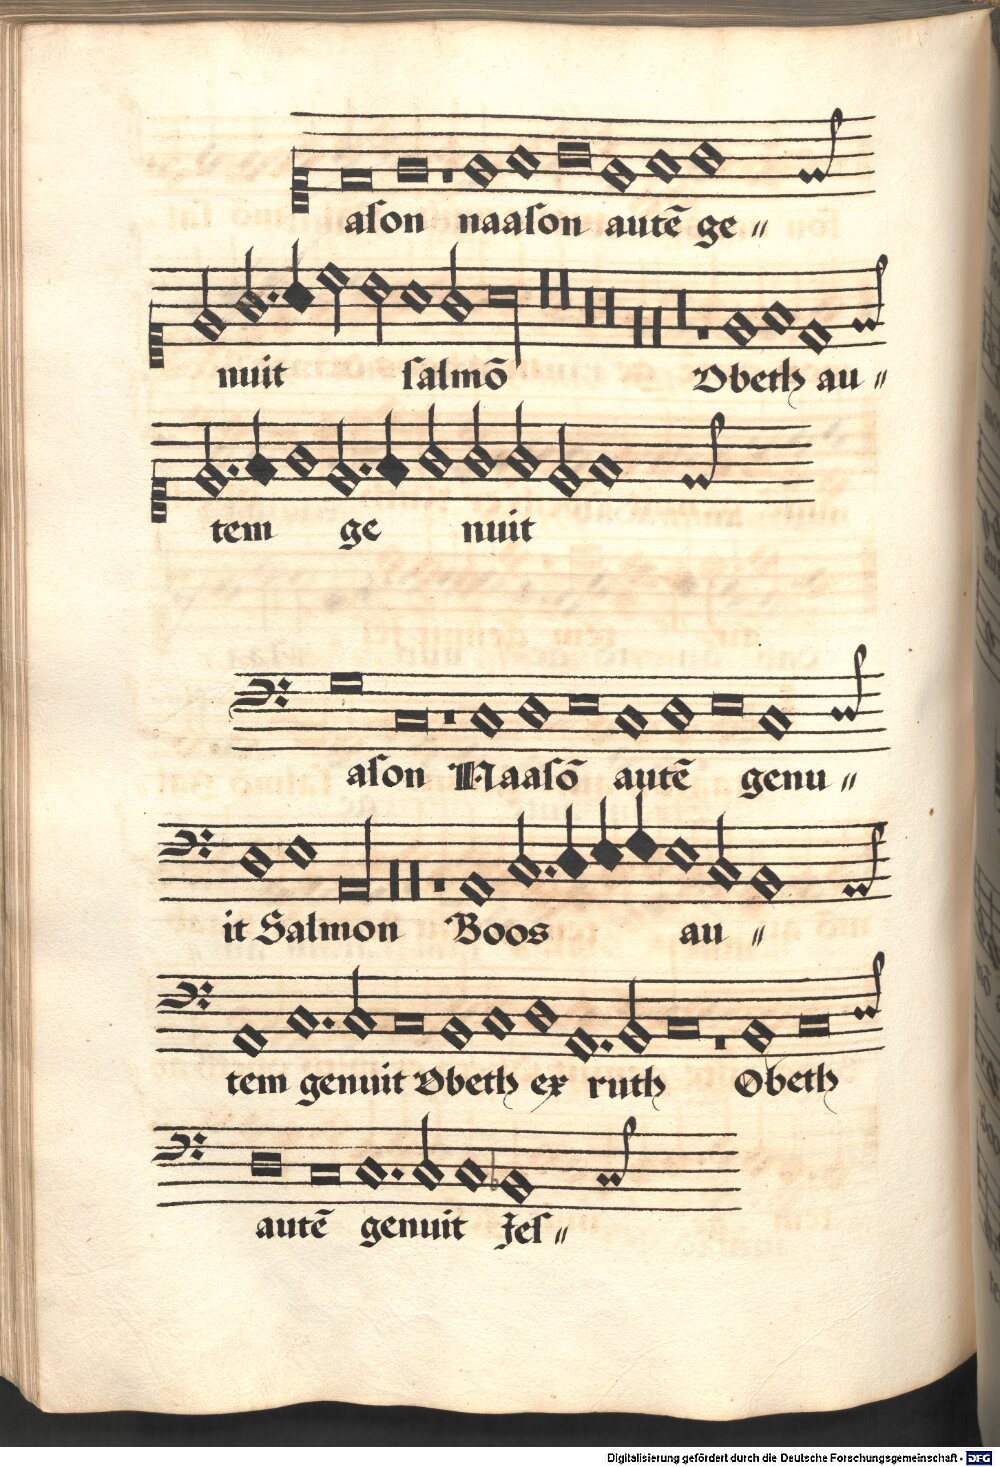 aſon naaſon autē ge〃
nuit ſalmō Obeth au〃
tem ge nuit
aſon Naaſō autē genu〃
it Salmon Boos au〃
tem genuit Obeth ex ruth Obeth
autē genuit Jeſ〃
Digitalisierung gefördert durch die Deutsche Forschungsgemeinschaft - DFG